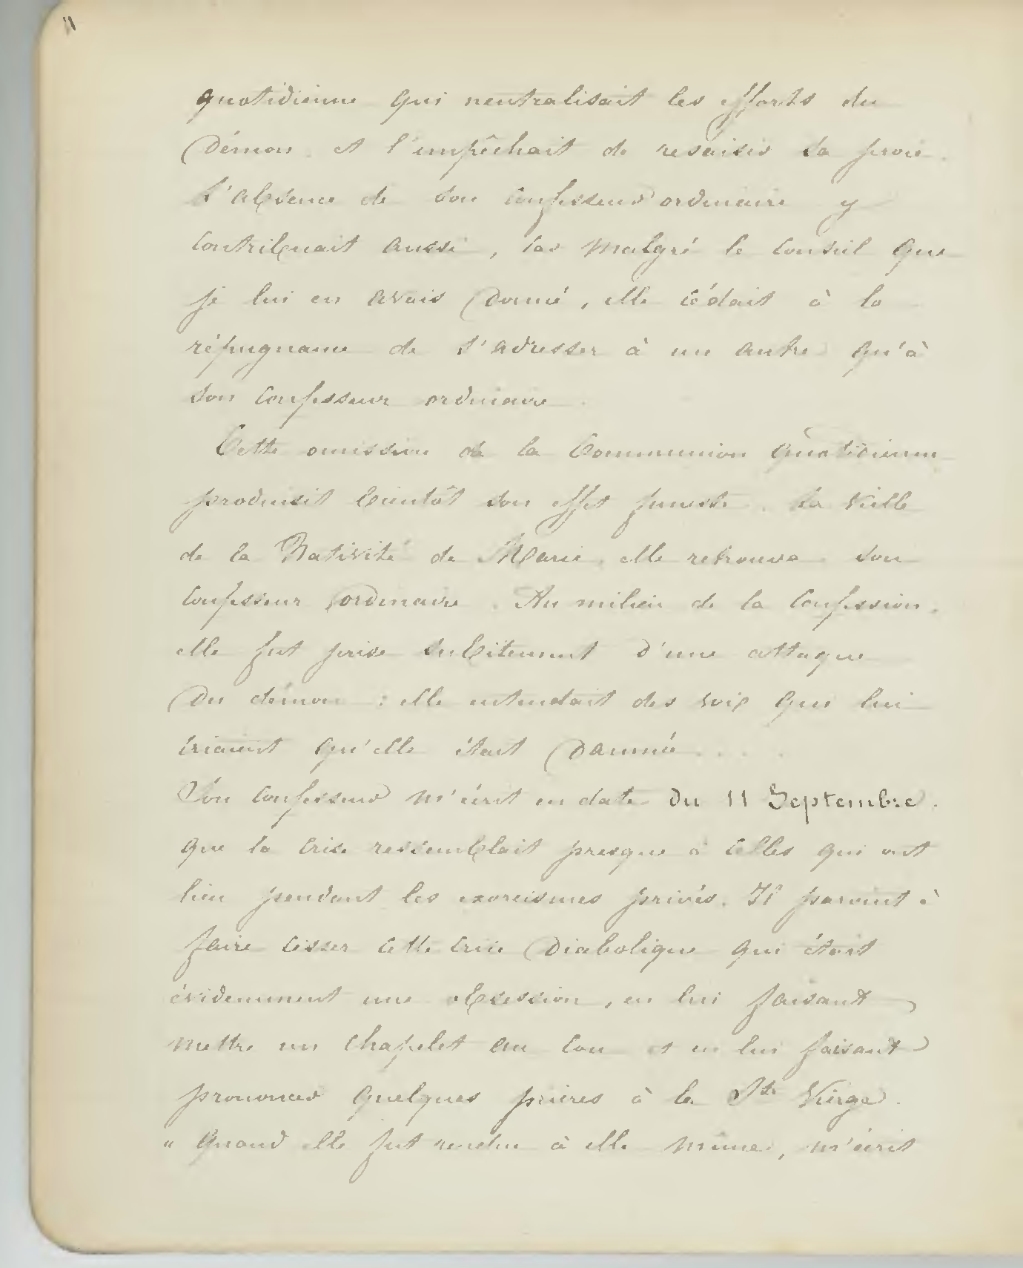 11
quotidienne qui neutralisait les efforts du
Démon et l'empêchait de resaisir sa proie.
L'absence de son confesseur ordinaire y
contribuait aussi, car malgré le conseil que
je lui en avais donné, elle cédait à la
répugnance de s'adresser à un autre qu'à
son confesseur ordinaire.
Cette omission de la Communion quotidienne
produisit bientôt son effet funeste. La veille
de la Nativité de Marie, elle retrouva son
confesseur ordinaire. Au milieu de la confession,
elle fut prise subitement d'une attaque
du démon : elle entendait des voix qui lui
criaient qu'elle était damnée....
Son confesseur m'écrit en date du 11 Septembre.
que la crise ressemblait presque à celles qui ont
lieu pendant les exorcismes privés. Il parvint à
faire cesser cette crise diabolique qui était
évidemment une obsession, en lui faisant
mettre un chapelet au cou et en lui faisant
prononcer quelques prières à la Ste Vierge.
" Quand elle fut rendue à elle même, m'écrit